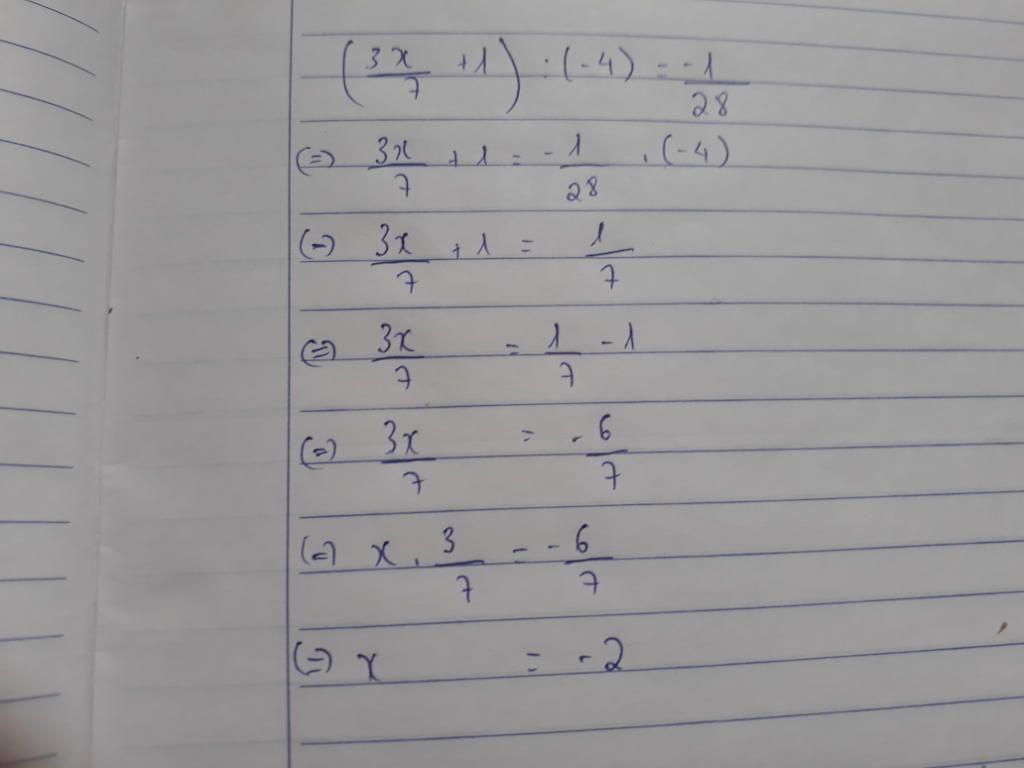 (3x/7 + 1) : (-4) = -1/28
(=) 3x/7 + 1 = -1/28 . (-4)
(=) 3x/7 + 1 = 1/7
(=) 3x/7 = 1/7 - 1
(=) 3x/7 = -6/7
(=) x . 3/7 = -6/7
(=) x = -2